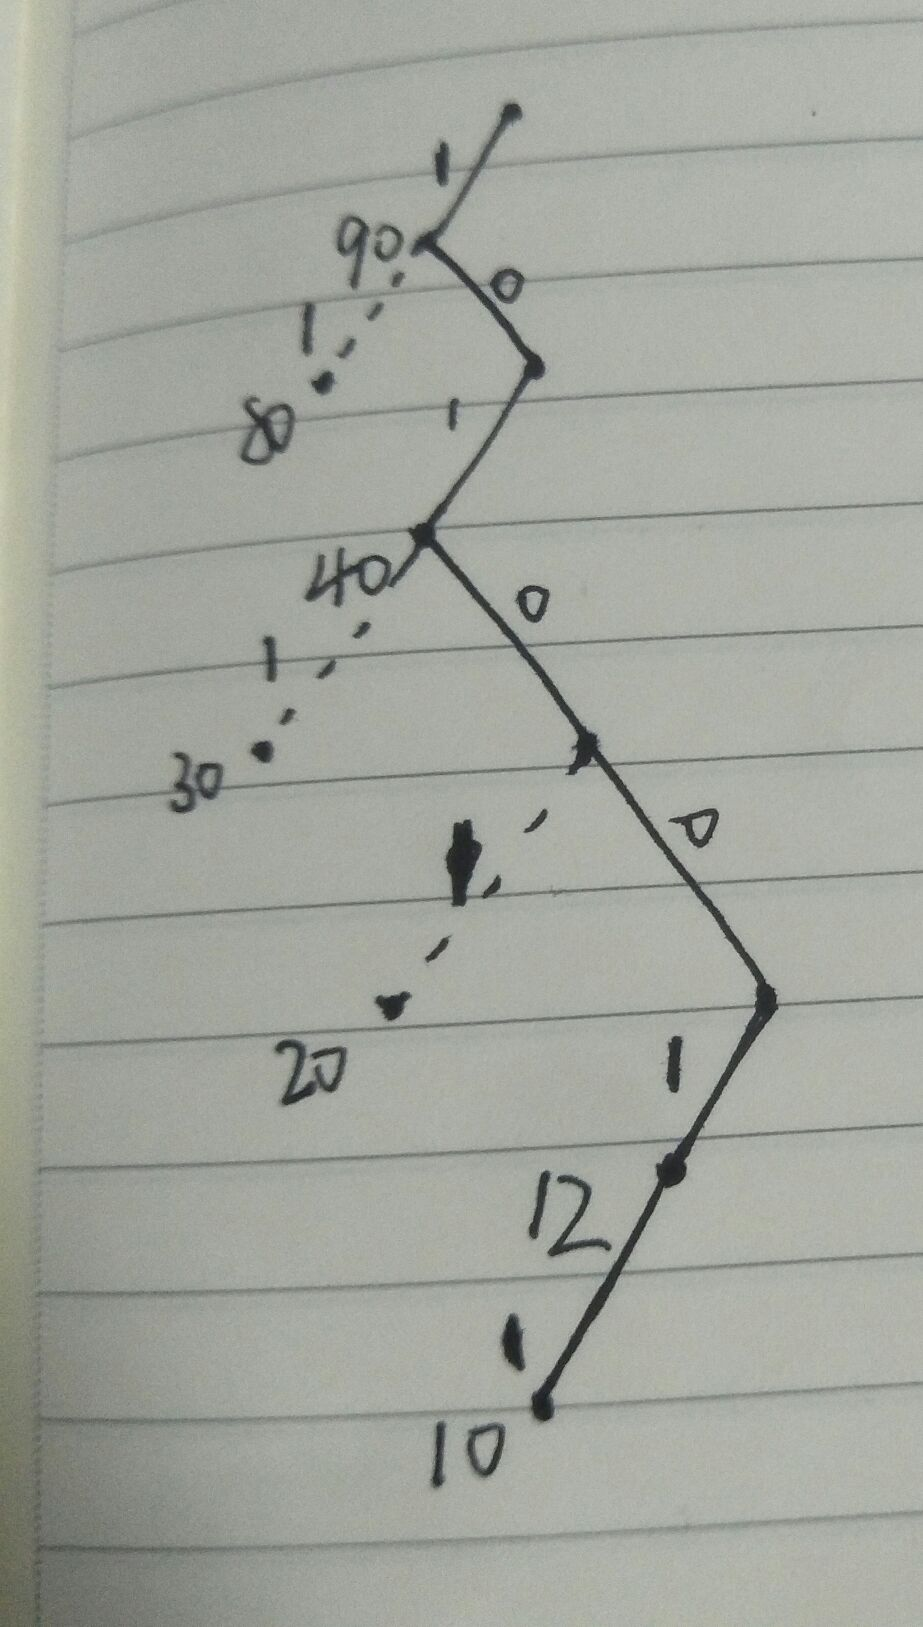 1
90
0
1
80
1
40
0
1
30
0
1
20
1
12
1
10